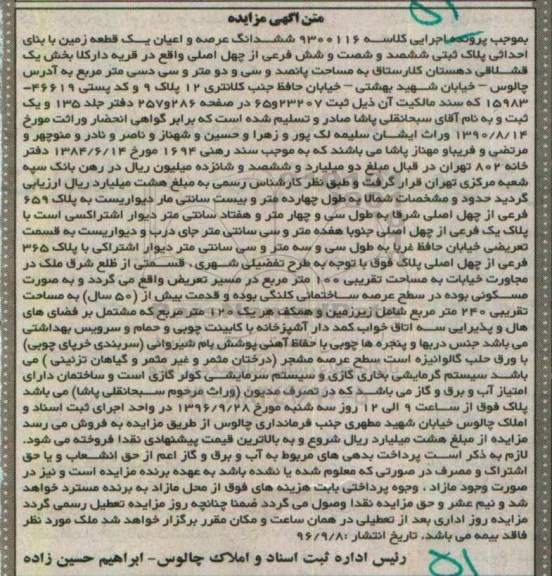 متن آگهی مزایده
بموجب پرونده اجرایی کلاسه ۹۳۰۰۱۱۶ ششدانگ عرصه و اعیان یک قطعه زمین با بنای
احداثی پلاک ثبتی ششصد و شصت و شش فرعی از چهل اصلی واقع در قریه دارکلا بخش یک
قشلاقی دهستان کلارستاق به مساحت پانصد و سی و دو متر و سی دسی متر مربع به آدرس
چالوس – خیابان شهید بهشتی – خیابان حافظ جنب کلانتری ۱۲ پلاک ۹ و کد پستی ۴۶۶۱۹-
۱۵۹۸۳ که سند مالکیت آن ذیل ثبت ۲۳۲۰۷و۶۵ در صفحه ۲۸۶و۲۵۷ دفتر جلد ۱۳۵ و یک
ثبت و به نام آقای سبحانقلی پاشا صادر و تسلیم شده است که برابر گواهی انحضار وراثت مورخ
۱۳۹۰/۸/۱۴ وراث ایشان سلیمه لک پور و زهرا و حسین و شهناز و ناصر و نادر و منوچهر و
مرتضی و فریبا و مهناز پاشا می باشند که به موجب سند رهنی ۱۶۹۴ مورخ ۱۳۸۴/۶/۱۴ دفتر
خانه ۸۰۲ تهران در قبال مبلغ دو میلیارد و ششصد و شانزده میلیون ریال در رهن بانک سپه
شعبه مرکزی تهران قرار گرفت و طبق نظر کارشناس رسمی به مبلغ هشت میلیارد ریال ارزیابی
گردید حدود و مشخصات شمالا به طول چهارده متر و بیست سانتی مار دیواریست به پلاک ۶۵۹
فرعی از چهل اصلی شرقا به طول سی و چهار متر و هفتاد سانتی متر دیوار اشتراکسی است با
پلاک یک فرعی از چهل اصلی جنوبا هفده متر و سی سانتی متر جای درب و دیواریست به قسمت
تعریضی خیابان حافظ غربا به طول سی و سه متر و سی سانتی متر دیوار اشتراکی با پلاک ۳۶۵
فرعی از چهل اصلی پلاک فوق با توجه به طرح تفضیلی شهری ، قسمتی از ظلع شرق ملک در
مجاورت خیابات به مساحت تقریبی ۱۰۰ متر مربع در مسیر تعریض واقع می گردد و به صورت
مسکونی بوده در سطح عرصه ساختمانی کلنگی بوده و قدمت بیش از (۵۰ سال) به مساحت
تقریبی ۲۴۰ متر مربع شامل زیرزمین و همکف هر یک ۱۲۰ متر مربع که مشتمل بر فضای های
هال و پذیرایی سه اتاق خواب کمد دار آشپزخانه با کابینت چوبی و حمام و سرویس بهداشتی
می باشد جنس دربها و پنجره ها چوبی با حفاظ آهنی پوشش بام شیروانی (سربندی خرپای چوبی)
با ورق حلب گالوانیزه است سطح عرصه مشجر (درختان مثمر و غیر مثمر و گیاهان تزئینی ) می
باشد سیستم گرمایشی بخاری گازی و سیستم سرمایشی کولر گازی است و ساختمان دارای
امتیاز آب و برق و گاز می باشد که در تصرف مدیون (وراث مرحوم سبحانقلی پاشا) می باشد
پلاک فوق از ساعت ۹ الی ۱۲ روز سه شنبه مورخ ۱۳۹۶/۹/۲۸ در واحد اجرای ثبت اسناد و
املاک چالوس خیابان شهید مطهری جنب فرمانداری چالوس از طریق مزایده به فروش می رسد
مزایده از مبلغ هشت میلیارد ریال شروع و به بالاترین قیمت پیشنهادی نقدا فروخته می شود.
لازم به ذکر است پرداخت بدهی های مربوط به آب و برق و گاز اعم از حق انشعاب و یا حق
اشتراک و مصرف در صورتی که معلوم شده یا نشده باشد به عهده برنده مزایده است و نیز در
صورت وجود مازاد ، وجوه پرداختی بابت هزینه های فوق از محل مازاد به برنده مسترد خواهد
شد و نیم عشر و حق مزایده نقدا وصول می گردد ضمنا چنانچه روز مزایده تعطیل رسمی گردد
مزایده روز اداری بعد از تعطیلی در همان ساعت و مکان مقرر برگزار خواهد شد ملک مورد نظر
فاقد بیمه می باشد. تاریخ انتشار :۹۶/۹/۸
رئیس اداره ثبت اسناد و املاک چالوس- ابراهیم حسین زاده